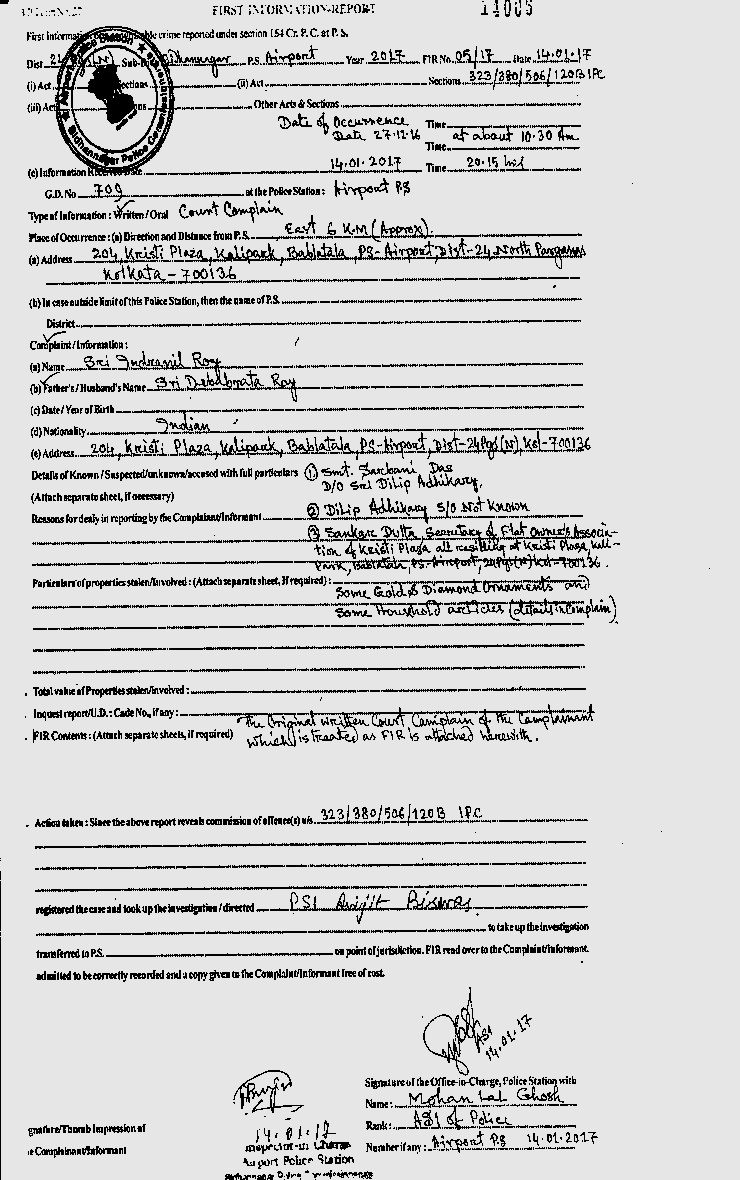 FIRST INFORMATION-REPORT
14005
First Information of a cognizable crime reported under section 154 Cr. P. C. at P. S.
Dist 24 (N) Sub-Div Bidhannagar P.S. Airport Year 2017 FIR No. 05/17 Date 14.01.17
(i) Act Sections (ii) Act Sections 323/380/506/120B IPC
(iii) Act Sections Other Acts & Sections
Date of Occurrence Time
Date 27.12.16 at about 10.30 Am
Time
(c) Information Received Date 14.01.2017 Time 20.15 hrs
G.D. No 709 at the Police Station : Airport PS
Type of Information : Written / Oral Court Complain
Place of Occurrence : (a) Direction and Distance from P.S. East 6 K.M (Approx).
(a) Address 204, Kristi Plaza, Kalipark, Bablatala, PS-Airport, Dist-24 North Parganas
Kolkata - 700136
(b) In case outside limit of this Police Station, then the name of P.S.
District
Complaint / Information :
(a) Name Sri Indranil Roy
(b) Father's / Husband's Name Sri Debabrata Roy
(c) Date / Year of Birth
(d) Nationality Indian
(e) Address 204, Kristi Plaza, Kalipark, Bablatala, PS-Airport, Dist-24Pgs(N), Kol-700136
Details of Known / Suspected/unknown/accused with full particulars ① Smt. Sarbani Das
D/O Sri Dilip Adhikary.
(Attach separate sheet, if necessary)
Reasons for dealy in reporting by the Complaint/Informant ② Dilip Adhikary S/O Not Known
③ Sankar Dutta, Secretary of Flat Owner's Associa-
tion of Kristi Plaza all residing at Kristi Plaza, Kali-
Park, Bablatala, PS-Airport, 24Pgs(N) Kol-700136.
Particulars of properties stolen/Involved : (Attach separate sheet, If required) :
Some Gold & Diamond Ornaments and
Some Household articles (details in Complain)
Total value of Properties stolen/involved :
Inquest report/U.D. : Cade No., if any :
The Original written Court Complain of the Complainant
FIR Contents : (Attach separate sheets, if required) which is treated as FIR is attached herewith.
Action taken : Since the above report reveals commission of offence(s) u/s 323/380/506/120B IPC
registered the case and took up the investigation / directed PSI Avijit Biswas
to take up the investigation
transferred to P.S. on point of jurisdiction. FIR read over to the Complaint/Informant.
admitted to be correctly recorded and a copy given to the Complaint/Informant free of cost.
ASI
14.01.17
Signature of the Office-in-Charge, Police Station with
Name : Mohan Lal Ghosh
Rank : ASI of Police
Number if any : Airport PS 14.01.2017
gnature/Thumb Impression of
e Complainant/Informant
14.01.17
Inspector-in Charge
Airport Police Station